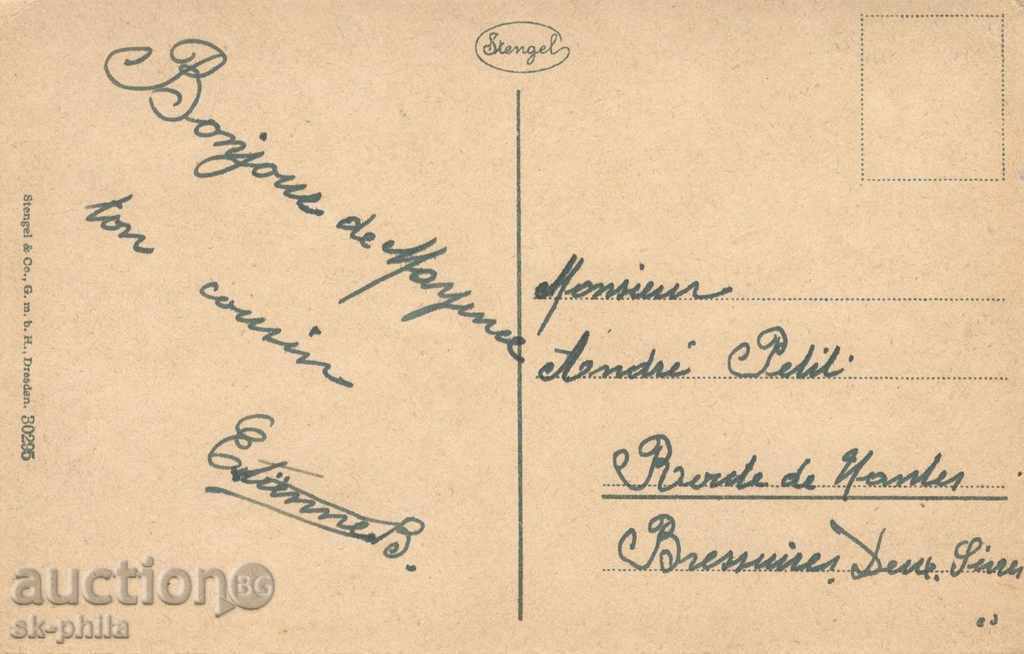 Stengel
Bonjour de Mayence
ton cousin
Etienne B.
Monsieur
André Petit
Route de Nantes
Bressuires. Deux. Sèvres
Stengel & Co., G. m. b. H., Dresden. 30295
auction BG
sk-phila